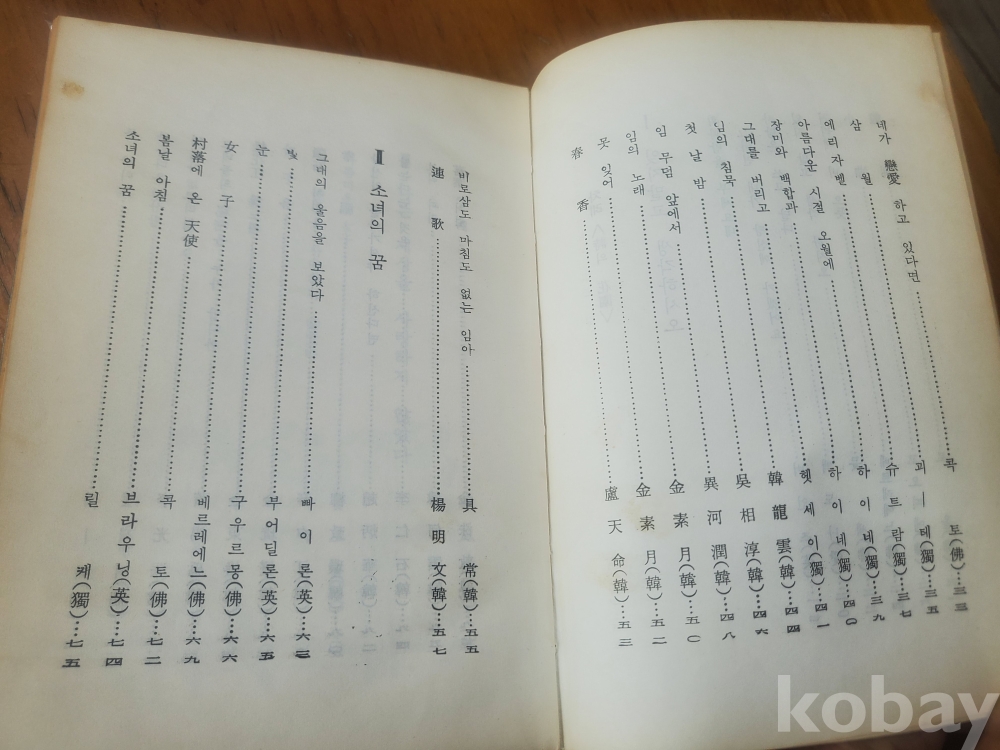 네가 戀愛 하고 있다면……콕 토(佛)…三三
삼 월……괴ㅣ테(獨)…三五
에리자벨……슈트람(獨)…三七
아름다운 시절 오월에……하이네(獨)…三九
장미와 백합과……하이네(獨)…四〇
그대를 버리고……헷세이(獨)…四一
님의 침묵……韓龍雲(韓)…四四
첫 날 밤……吳相淳(韓)…四六
임 무덤 앞에서……異河潤(韓)…四八
임의 노래……金素月(韓)…五〇
못 잊어……金素月(韓)…五二
春 香……盧天命(韓)…五三
비로삼도 마침도 없는 임아……具 常(韓)…五五
連 歌……楊明文(韓)…五七
Ⅱ 소녀의 꿈
그대의 울음을 보았다……빠이론(英)…六三
빛……부어딜론(英)…六五
눈……구우르몽(佛)…六六
女 子……베르레에느(佛)…六九
村落에 온 天使……콕 토(佛)…七二
봄날 아침……브라우닝(英)…七四
소녀의 꿈……릴 케(獨)…七五
kobay